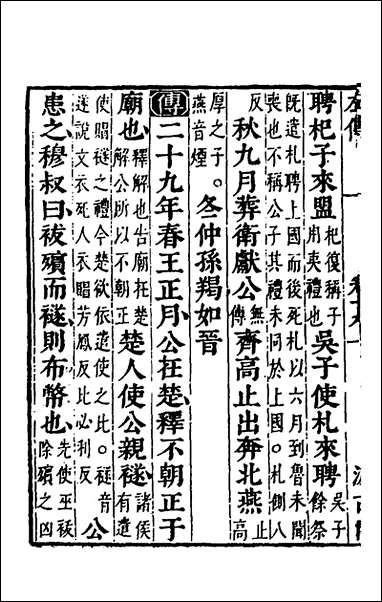 左傳
聘杞子來盟杞復稱子用夷禮也吳子使札來聘吳子餘祭
既遣札聘上國而後死札以六月到魯未聞喪也不稱公子其禮未同於上國。札側八
反秋九月葬衛獻公無傳齊高止出奔北燕止高
厚之子。燕音煙冬仲孫羯如晉
傳二十九年春王正月公在楚釋不朝正于
廟也釋解也告廟在楚解公所以不朝正楚人使公親襚諸侯有遣
使賵襚之禮今楚欲依遣使之比。襚音遂說文衣死人衣賵芳鳳反比必利反公
患之穆叔曰祓殯而襚則布幣也先使巫祓除殯之凶